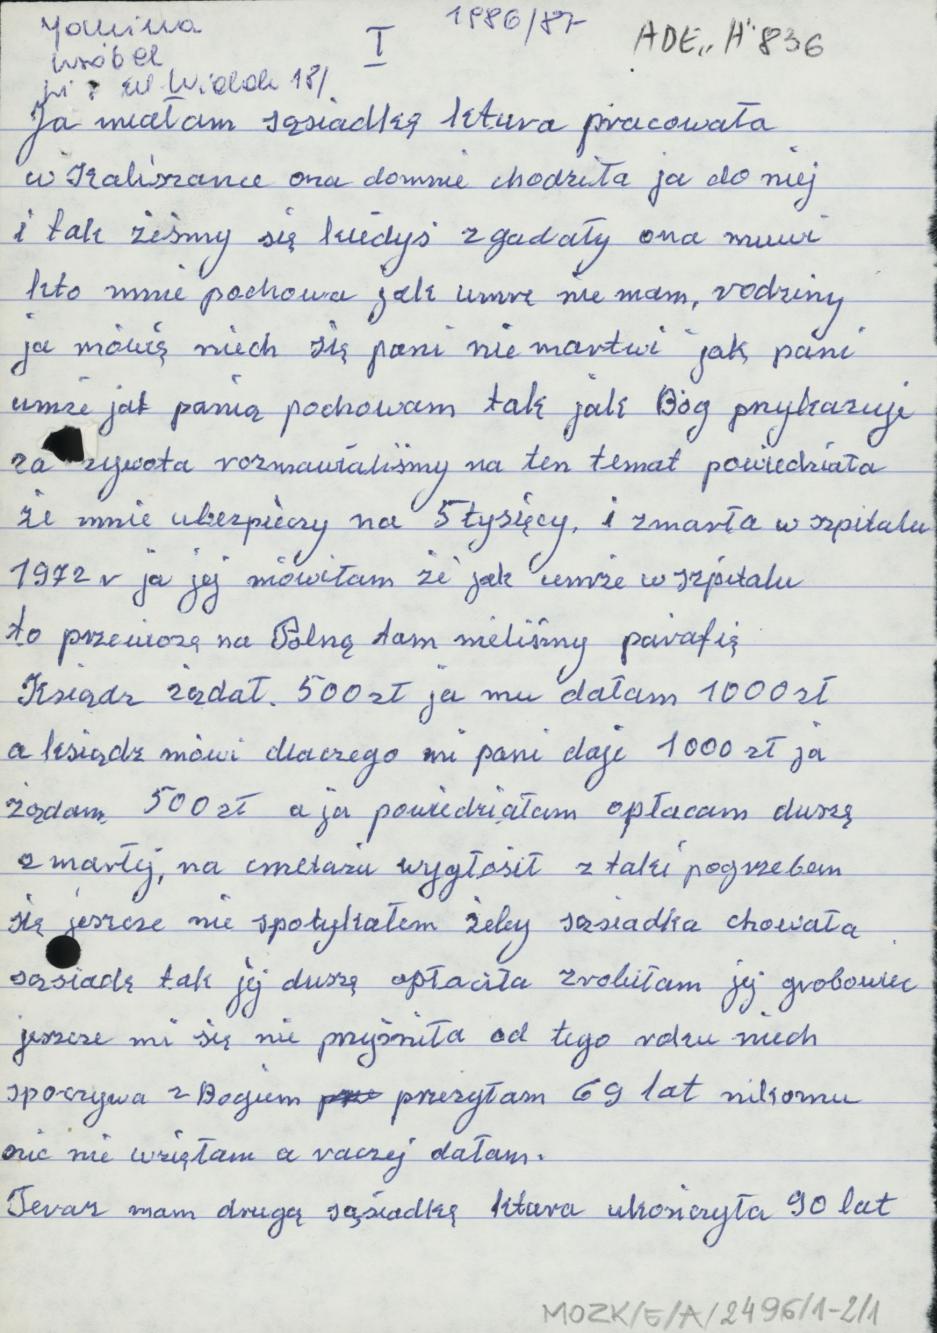 Janina
Wróbel
1986/87
I
ADE „H" 836
ul. Widok 18/
Ja miałam sąsiadkę ktura pracowała
w Kaliszance ona domnie chodziła ja do niej
i tak żeśmy się kiedyś zgadały ona muwi
kto mnie pochowa jak umrę nie mam, rodziny
ja mówię niech się pani nie martwi jak pani
umże jak panią pochowam tak jak Bóg prykazuje
za żywota rozmawialiśmy na ten temat powiedziała
że mnie ubezpieczy na 5 tysięcy, i zmarła w szpitalu
1972 r ja jej mówiłam że jak umże w szpitalu
to przewiozę na Polną tam mieliśmy parafię
Ksiądz żądał. 500 zł ja mu dałam 1000 zł
a ksiądz mówi dlaczego mi pani daje 1000 zł ja
żądam 500 zł a ja powiedziałam opłacam duszę
zmarłej, na cmetażu wygłosił z taki pogrzebem
się jeszcze nie spotykałem żeby sąsiadka chowała
sąsiadę tak jej duszę opłaciła zrobiłam jej grobowiec
jeszcze mi się nie pryśniła od tego rdzu niech
spoczywa z Bogiem prezyłam 69 lat nikomu
nic nie wzięłam a raczej dałam.
Teraz mam drugą sąsiadkę ktura ukończyła 90 lat
MOZK/E/A/2496/1-2/1